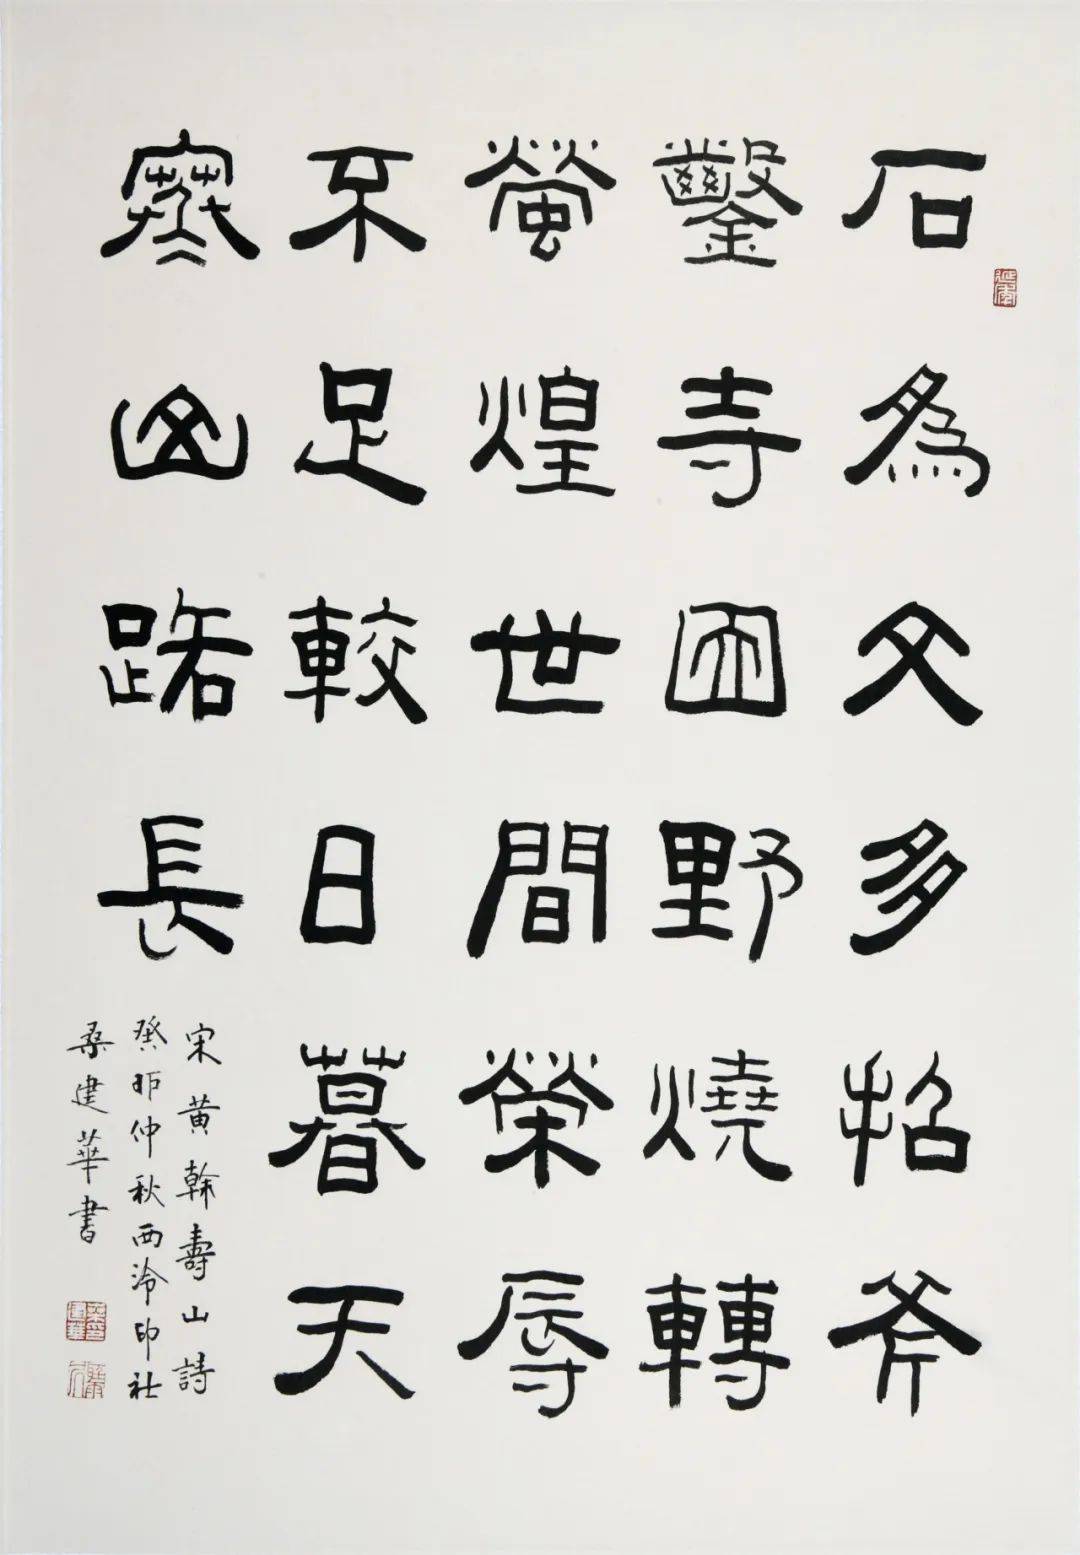 石為文多招斧
鑿寺因野燒轉
螢煌世間榮辱
不足較日暮天
寒山路長
宋黃榦壽山詩
癸卯仲秋西泠印社
桑建華書